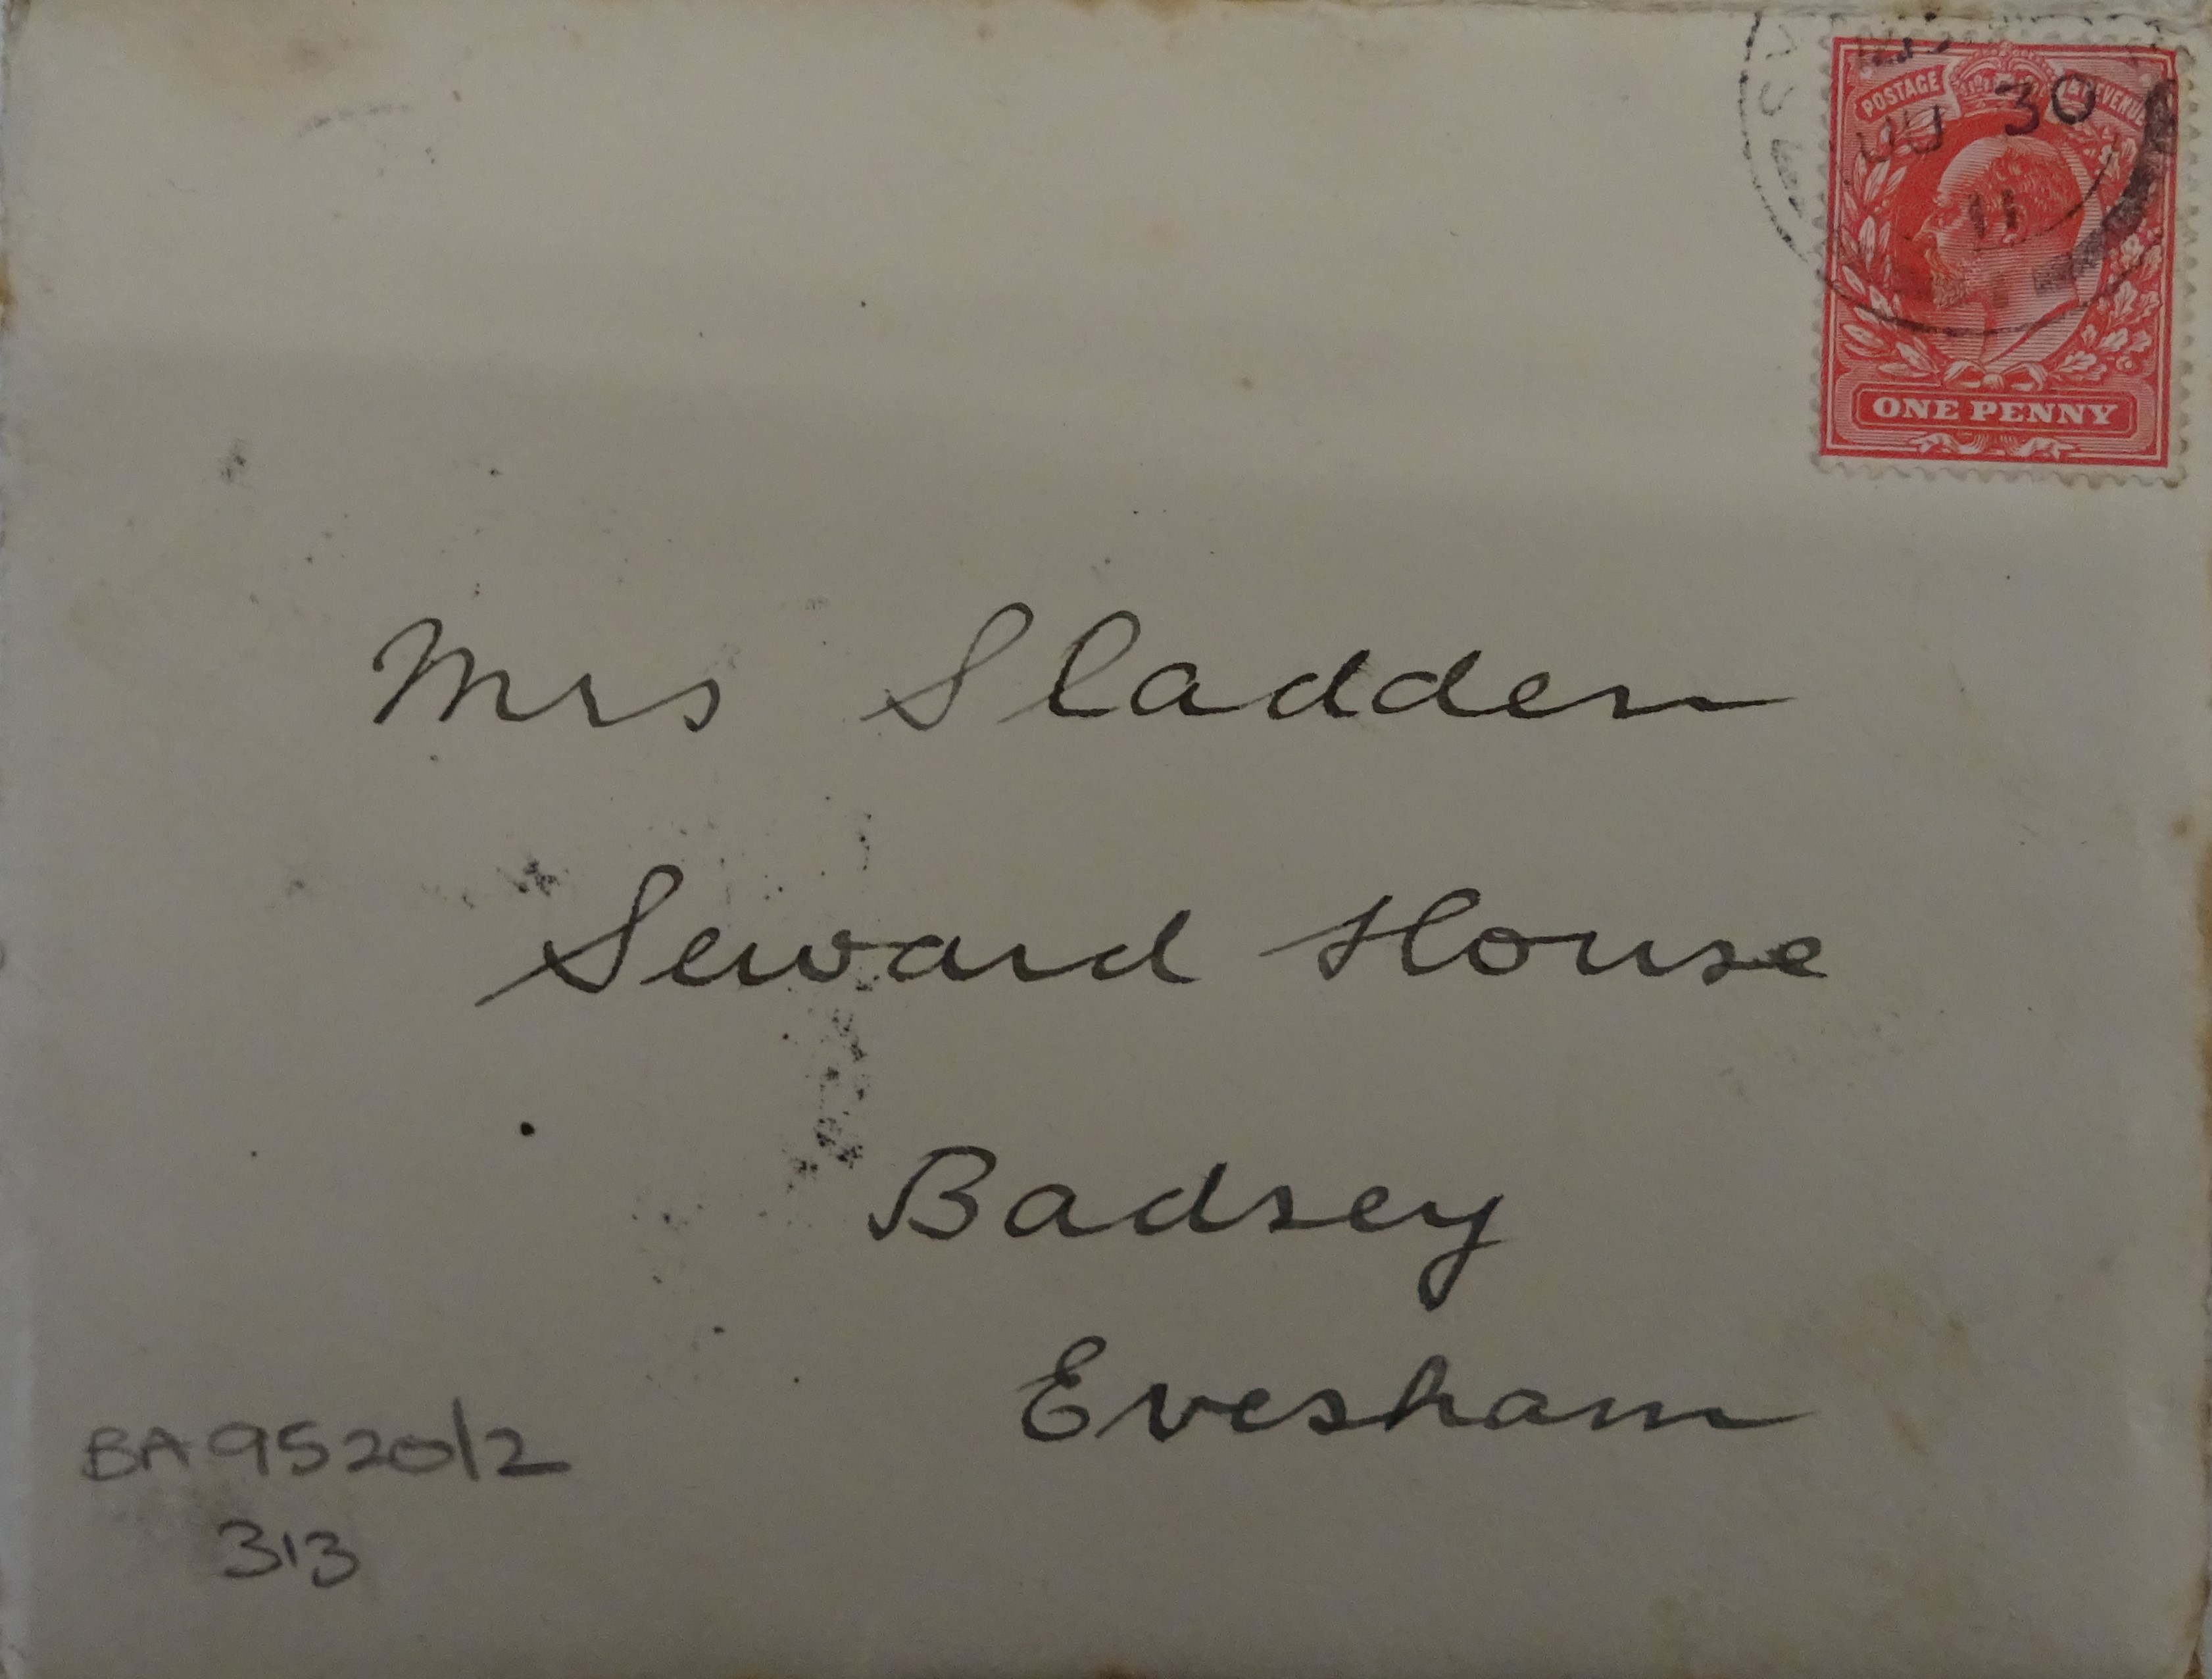 POSTAGE & REVENUE
JU 30
11
ONE PENNY
Mrs Sladden
Seward House
Badsey
Evesham
BA9520/2
313